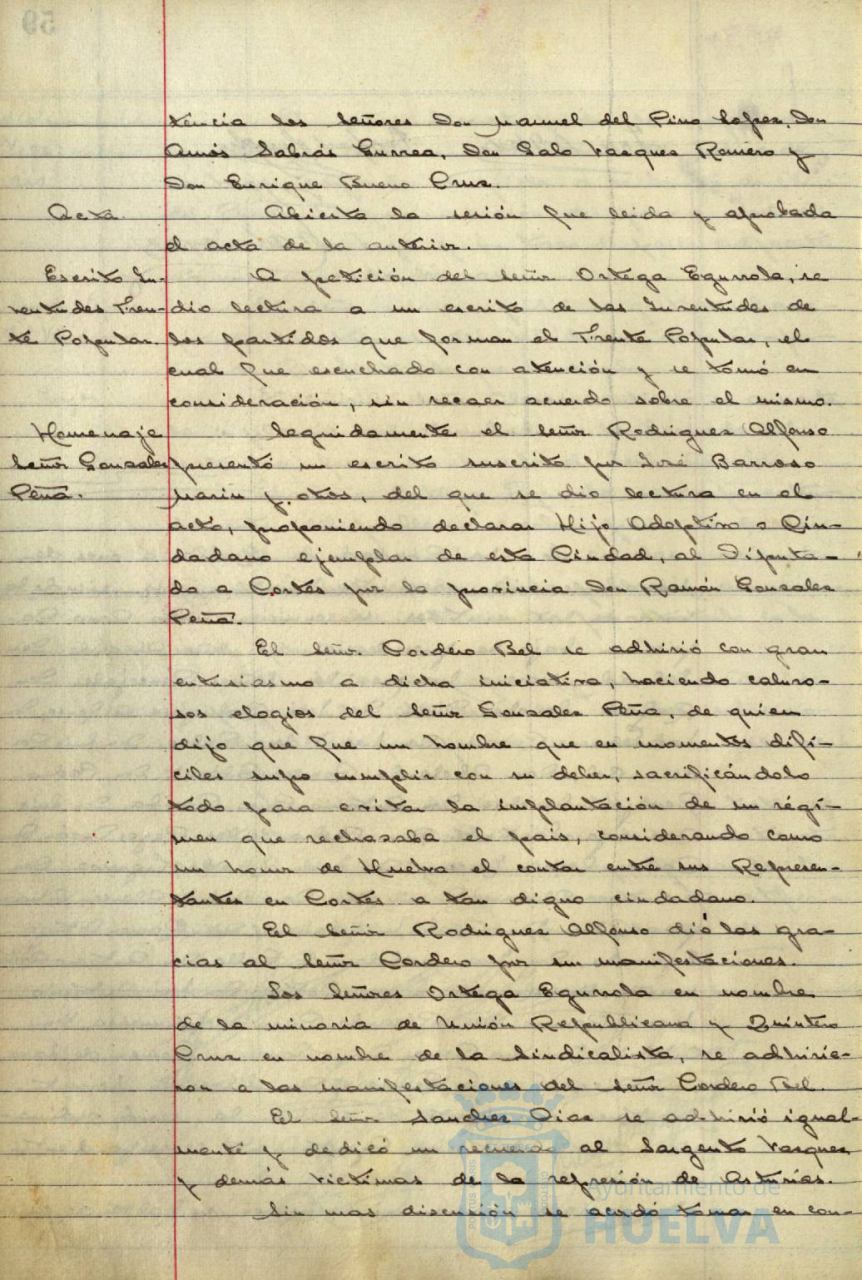 tencia los señores Don Manuel del Pino Lopez, Don
Amós Sabrás Gurrea, Don Galo Vazquez Romero y
Don Enrique Bueno Cruz.
Acta.
Abierta la sesión fue leida y aprobada
el acta de la anterior.
Escrito Ju-
ventudes Fren-
te Popular.
A petición del señor Ortega Egurrola, se
dio lectura a un escrito de las Juventudes de
los partidos que forman el Frente Popular, el
cual fue escuchado con atención y se tomó en
consideración, sin recaer acuerdo sobre el mismo.
Homenaje
señor Gonzalez
Peña.
Seguidamente el señor Rodriguez Alfonso
presentó un escrito suscrito por José Barroso
Marin y otros, del que se dio lectura en el
acto, proponiendo declarar Hijo Adoptivo o Ciu-
dadano ejemplar de esta Ciudad, al Diputa-
do a Cortés por la provincia Don Ramón Gonzalez
Peña.
El señor Cordero Bel se adhirió con gran
entusiasmo a dicha iniciativa, haciendo caluro-
sos elogios del señor Gonzalez Peña, de quien
dijo que fue un hombre que en momentos difí-
ciles supo cumplir con su deber, sacrificándolo
todo para evitar la implantación de un régi-
men que rechazaba el pais, considerando como
un honor de Huelva el contar entre sus Represen-
tantes en Cortés a tan digno ciudadano.
El señor Rodriguez Alfonso dió las gra-
cias al señor Cordero por sus manifestaciones.
Los señores Ortega Egurrola en nombre
de la minoria de Unión Republicana y Quintero
Cruz en nombre de la Sindicalista, se adhirie-
ron a las manifestaciones del señor Cordero Bel.
El señor Sanchez Diaz se adhirió igual-
mente y dedicó un recuerdo al Sargento Vazquez
y demás victimas de la represión de Asturias.
Sin mas discusión se acordó tomar en con-
Ayuntamiento de
HUELVA
59